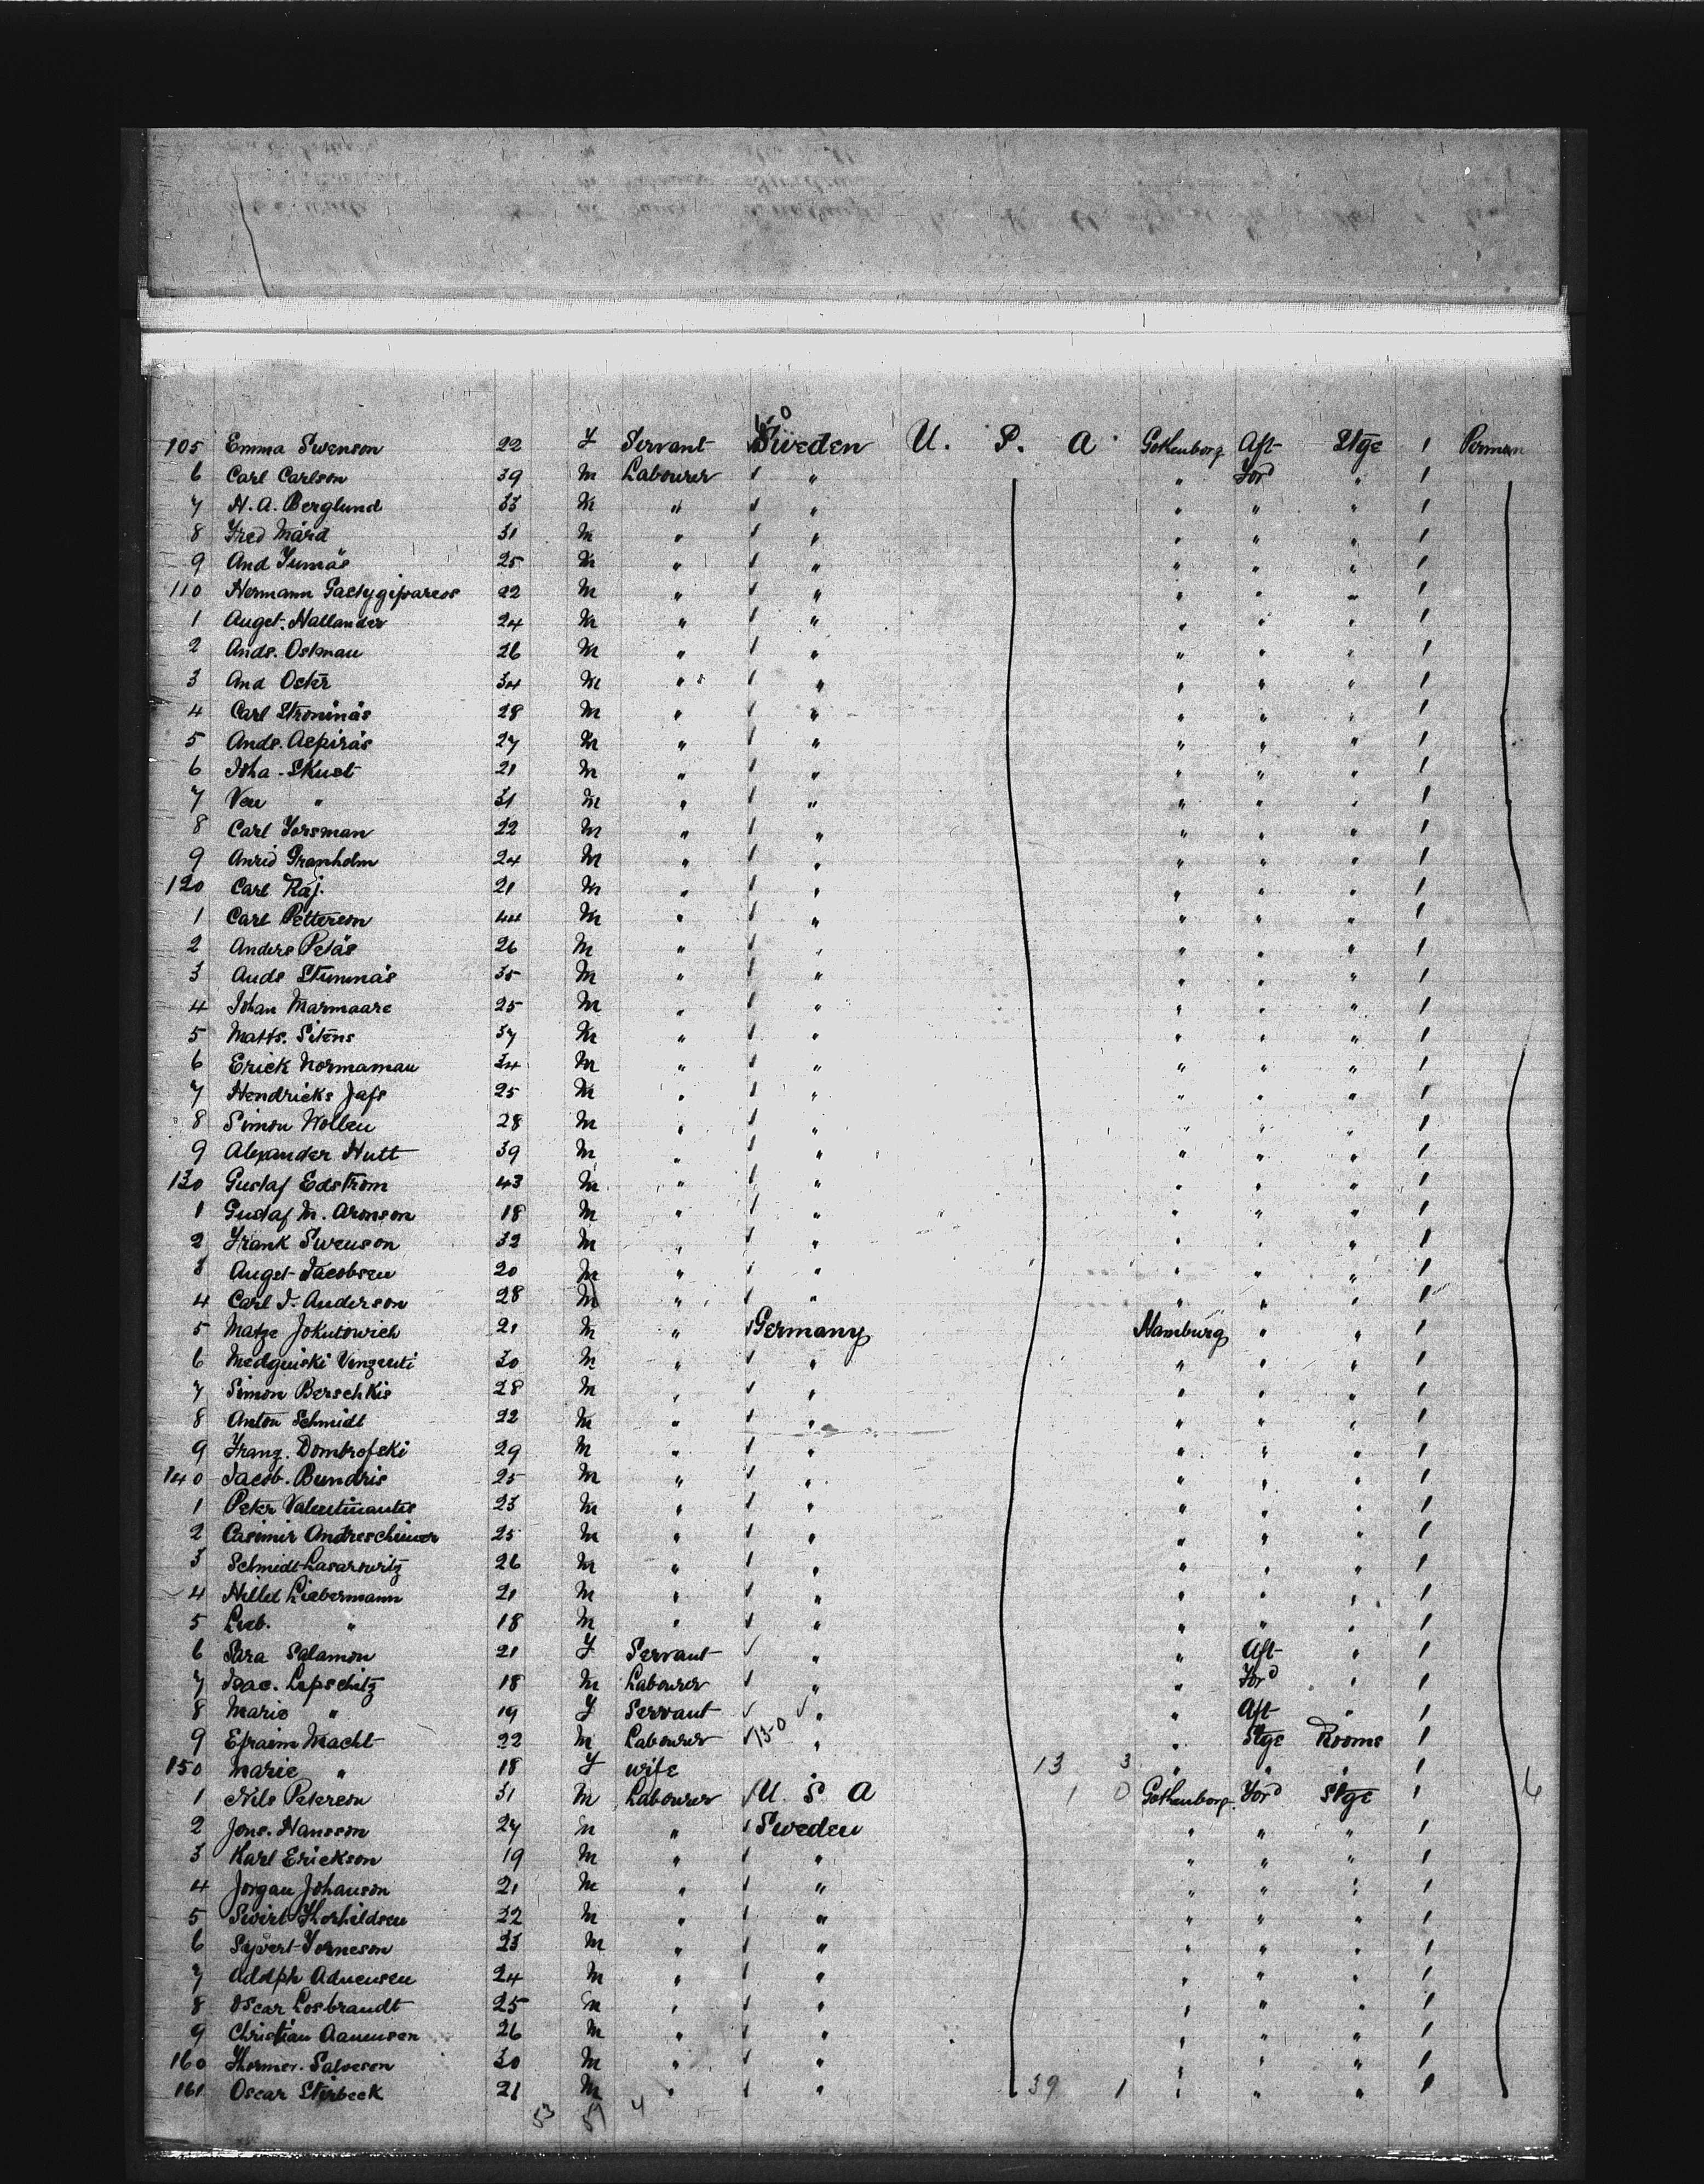 105 Emma Swenson 22 F Servant Sweden U. S. A Gothenborg Aft Stge 1 Perman
6 Carl Carlson 39 M Labourer " " For'd " 1
7 H. A. Berglund 33 M " " " " " 1
8 Fred Mård 31 M " " " " " 1
9 And 25 M " " " " " 1
110 Hermann 22 M " " " " " 1
1 Augst. Hallander 24 M " " " " " 1
2 Ands. Ostman 26 M " " " " " 1
3 And Oster 34 M " " " " " 1
4 Carl 28 M " " " " " 1
5 Ands. 27 M " " " " " 1
6 Joha - Skust 21 M " " " " " 1
7 " 31 M " " " " " 1
8 Carl Forsman 22 M " " " " " 1
9 Granholm 24 M " " " " " 1
120 Carl Raj. 21 M " " " " " 1
1 Carl Petterson 44 M " " " " " 1
2 Anders Petäs 26 M " " " " " 1
3 Ands 35 M " " " " " 1
4 Johan Marmaare 25 M " " " " " 1
5 Matts. 37 M " " " " " 1
6 Erick Normaman 34 M " " " " " 1
7 Hendricks Jafs 25 M " " " " " 1
8 Simon Wollen 28 M " " " " " 1
9 Alexander Hutt 39 M " " " " " 1
130 Gustaf Edstrom 43 M " " " " " 1
1 Gustaf M. Aronson 18 M " " " " " 1
2 Frank Swenson 32 M " " " " " 1
3 Augst Jacobsen 20 M " " " " " 1
4 Carl J. Anderson 28 M " " " " " 1
5 Matze Jokutowich 21 M " Germany Hamburg " " 1
6 Venzenti 30 M " " " " " 1
7 Simon Berschkis 28 M " " " " " 1
8 Anton Schmidt 22 M " " " " " 1
9 Franz. Dombrofski 29 M " " " " " 1
140 Jacob. Bundris 25 M " " " " " 1
1 Peter 23 M " " " " " 1
2 Casimir 25 M " " " " " 1
3 Schmidt Lasarowitz 26 M " " " " " 1
4 Hillel Liebermann 21 M " " " " " 1
5 Lieb. " 18 M " " " " " 1
6 Sara Salamon 21 F Servant " " Aft " 1
7 Isac. Lepschitz 18 M Labourer " " For'd " 1
8 Marie " 19 F Servant " " Aft " 1
9 Efraim Macht 22 M Labourer 13-0 " " Stge Rooms 1
150 Marie " 18 F wife 13 3 " " " 1
1 Nils Peterson 31 M Labourer U. S. A 1 0 Gothenborg. For'd Stge 1 6
2 Jons. Hansson 27 M " Sweden " " " 1
3 Karl Erickson 19 M " " " " " 1
4 Jorgan Johanson 21 M " " " " " 1
5 Thorkildsen 22 M " " " " " 1
6 Syvert 23 M " " " " " 1
7 Adolph 24 M " " " " " 1
8 Oscar Losbrandt 25 M " " " " " 1
9 Christian Aanensen 26 M " " " " " 1
160 Salveson 30 M " " " " " 1
161 Oscar Stirbeck 21 M " " 39 1 " " " 1
53 57 4